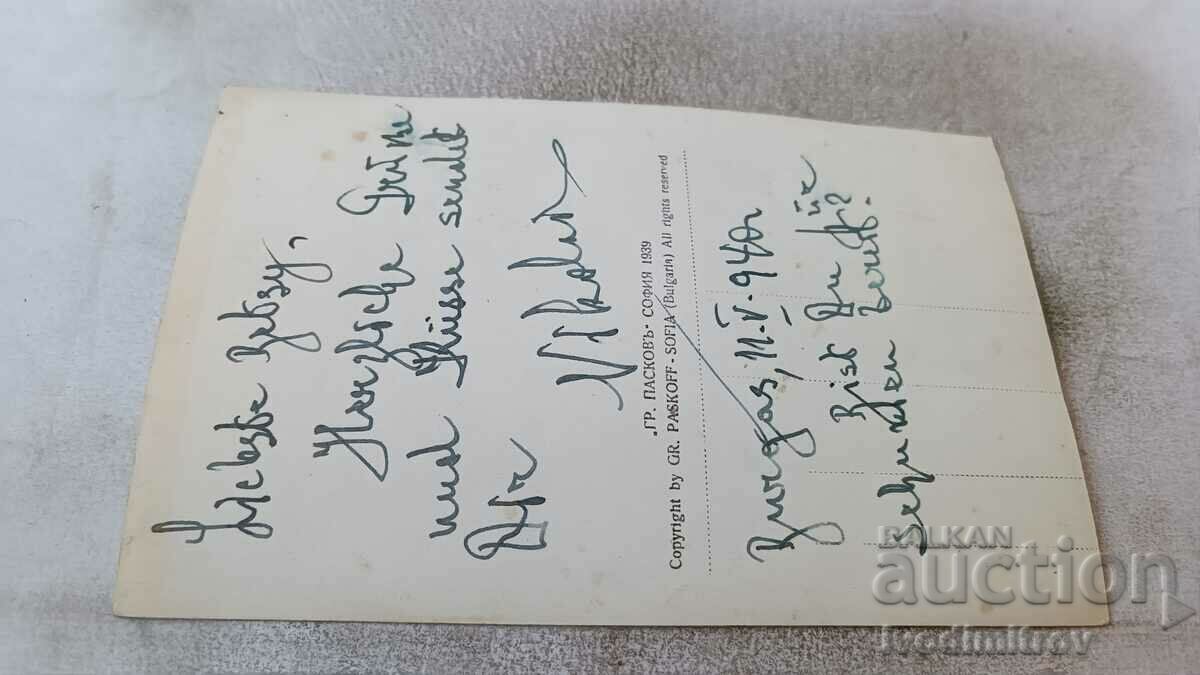 Liebste Betzy,
Herzliche Grüße
und Küsse sendet
Dir
Nikolai
„ГР. ПАСКОВЪ“ СОФИЯ 1939
Copyright by GR. PASKOFF - SOFIA (Bulgaria) All rights reserved
Burgas, 11.V.940
Bist Du
BALKAN
auction
ivodimitrov